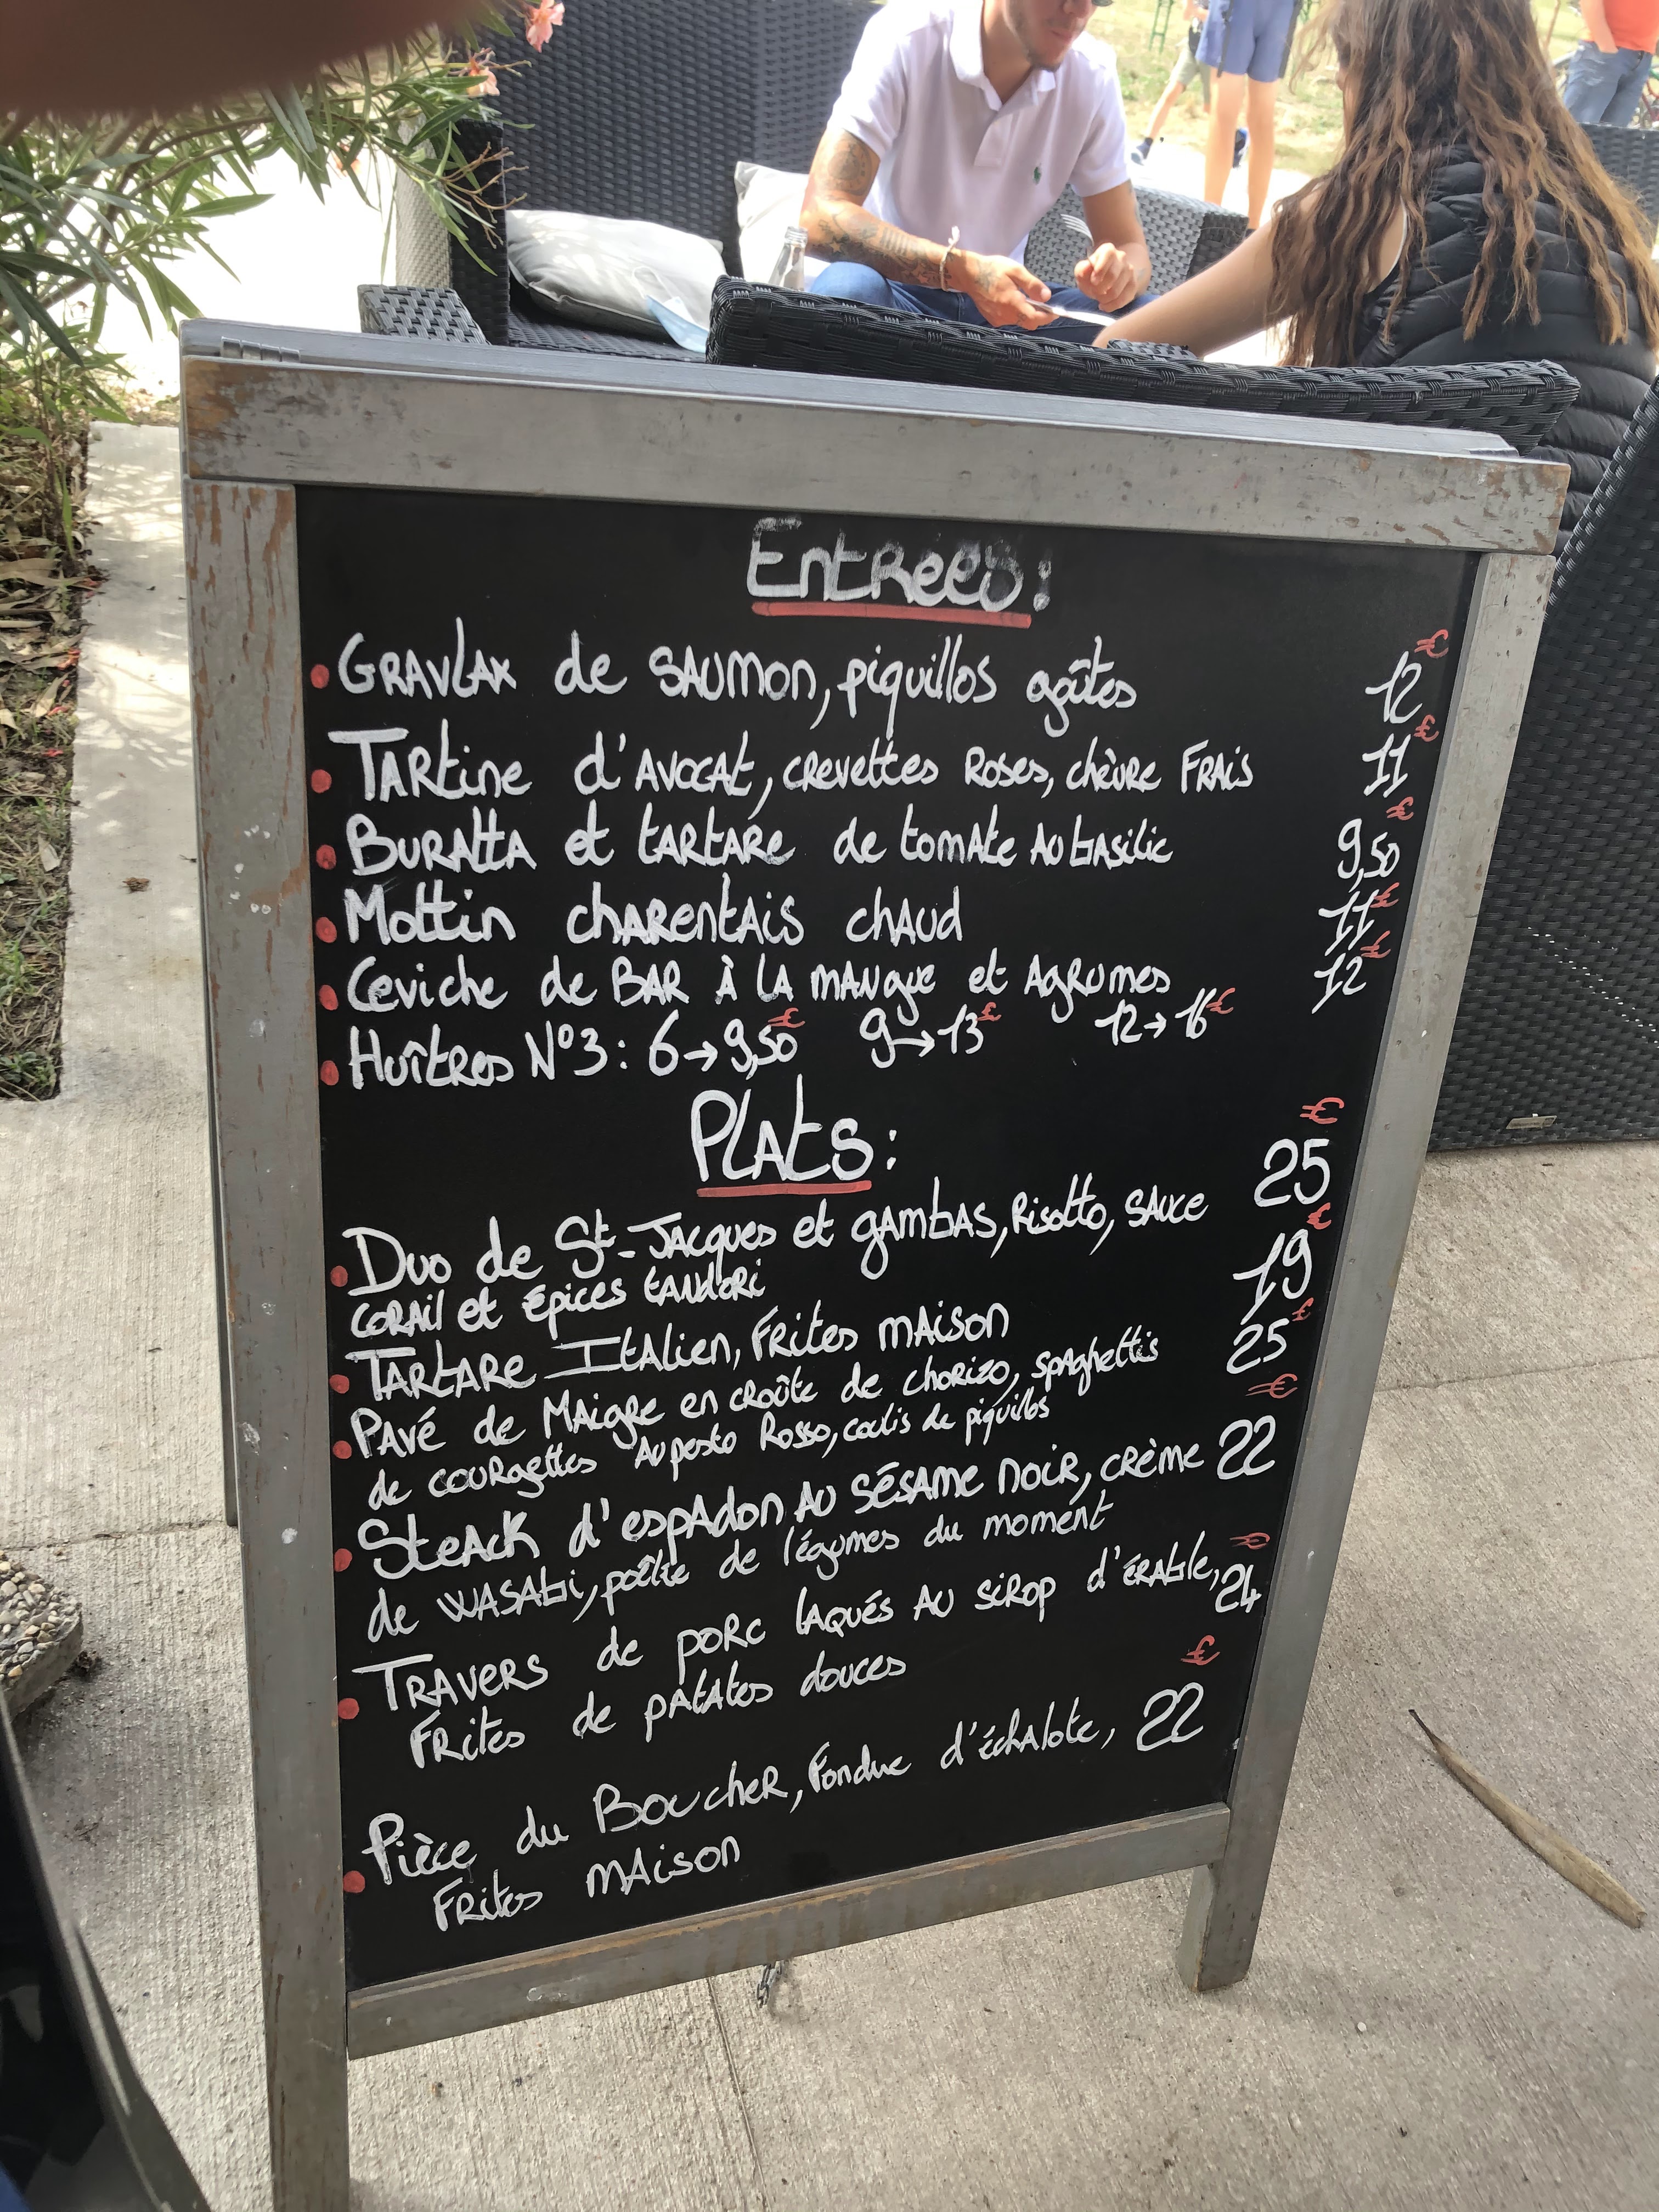 Entrees:
Gravlax de saumon, piquillos goûtes 12€
Tartine d'avocat, crevettes roses, chèvre frais 11€
Buratta et tartare de tomate au basilic 9,50€
Mottin charentais chaud 11€
Ceviche de bar à la mangue et agrumes 12€
Huîtres N°3: 6→9,50€ 9→13€ 12→16€
Plats:
Duo de St-Jacques et gambas, risotto, sauce 25€
corail et épices tandori
Tartare Italien, frites maison 19€
Pavé de maigre en croûte de chorizo, spaghettis 25€
de courgettes au pesto rosso, coulis de piquillos
Steack d'espadon au sésame noir, crème 22€
de wasabi, poêlée de légumes du moment
Travers de porc laqués au sirop d'érable, 24€
frites de patates douces
Pièce du Boucher, fondue d'échalote, 22€
frites maison